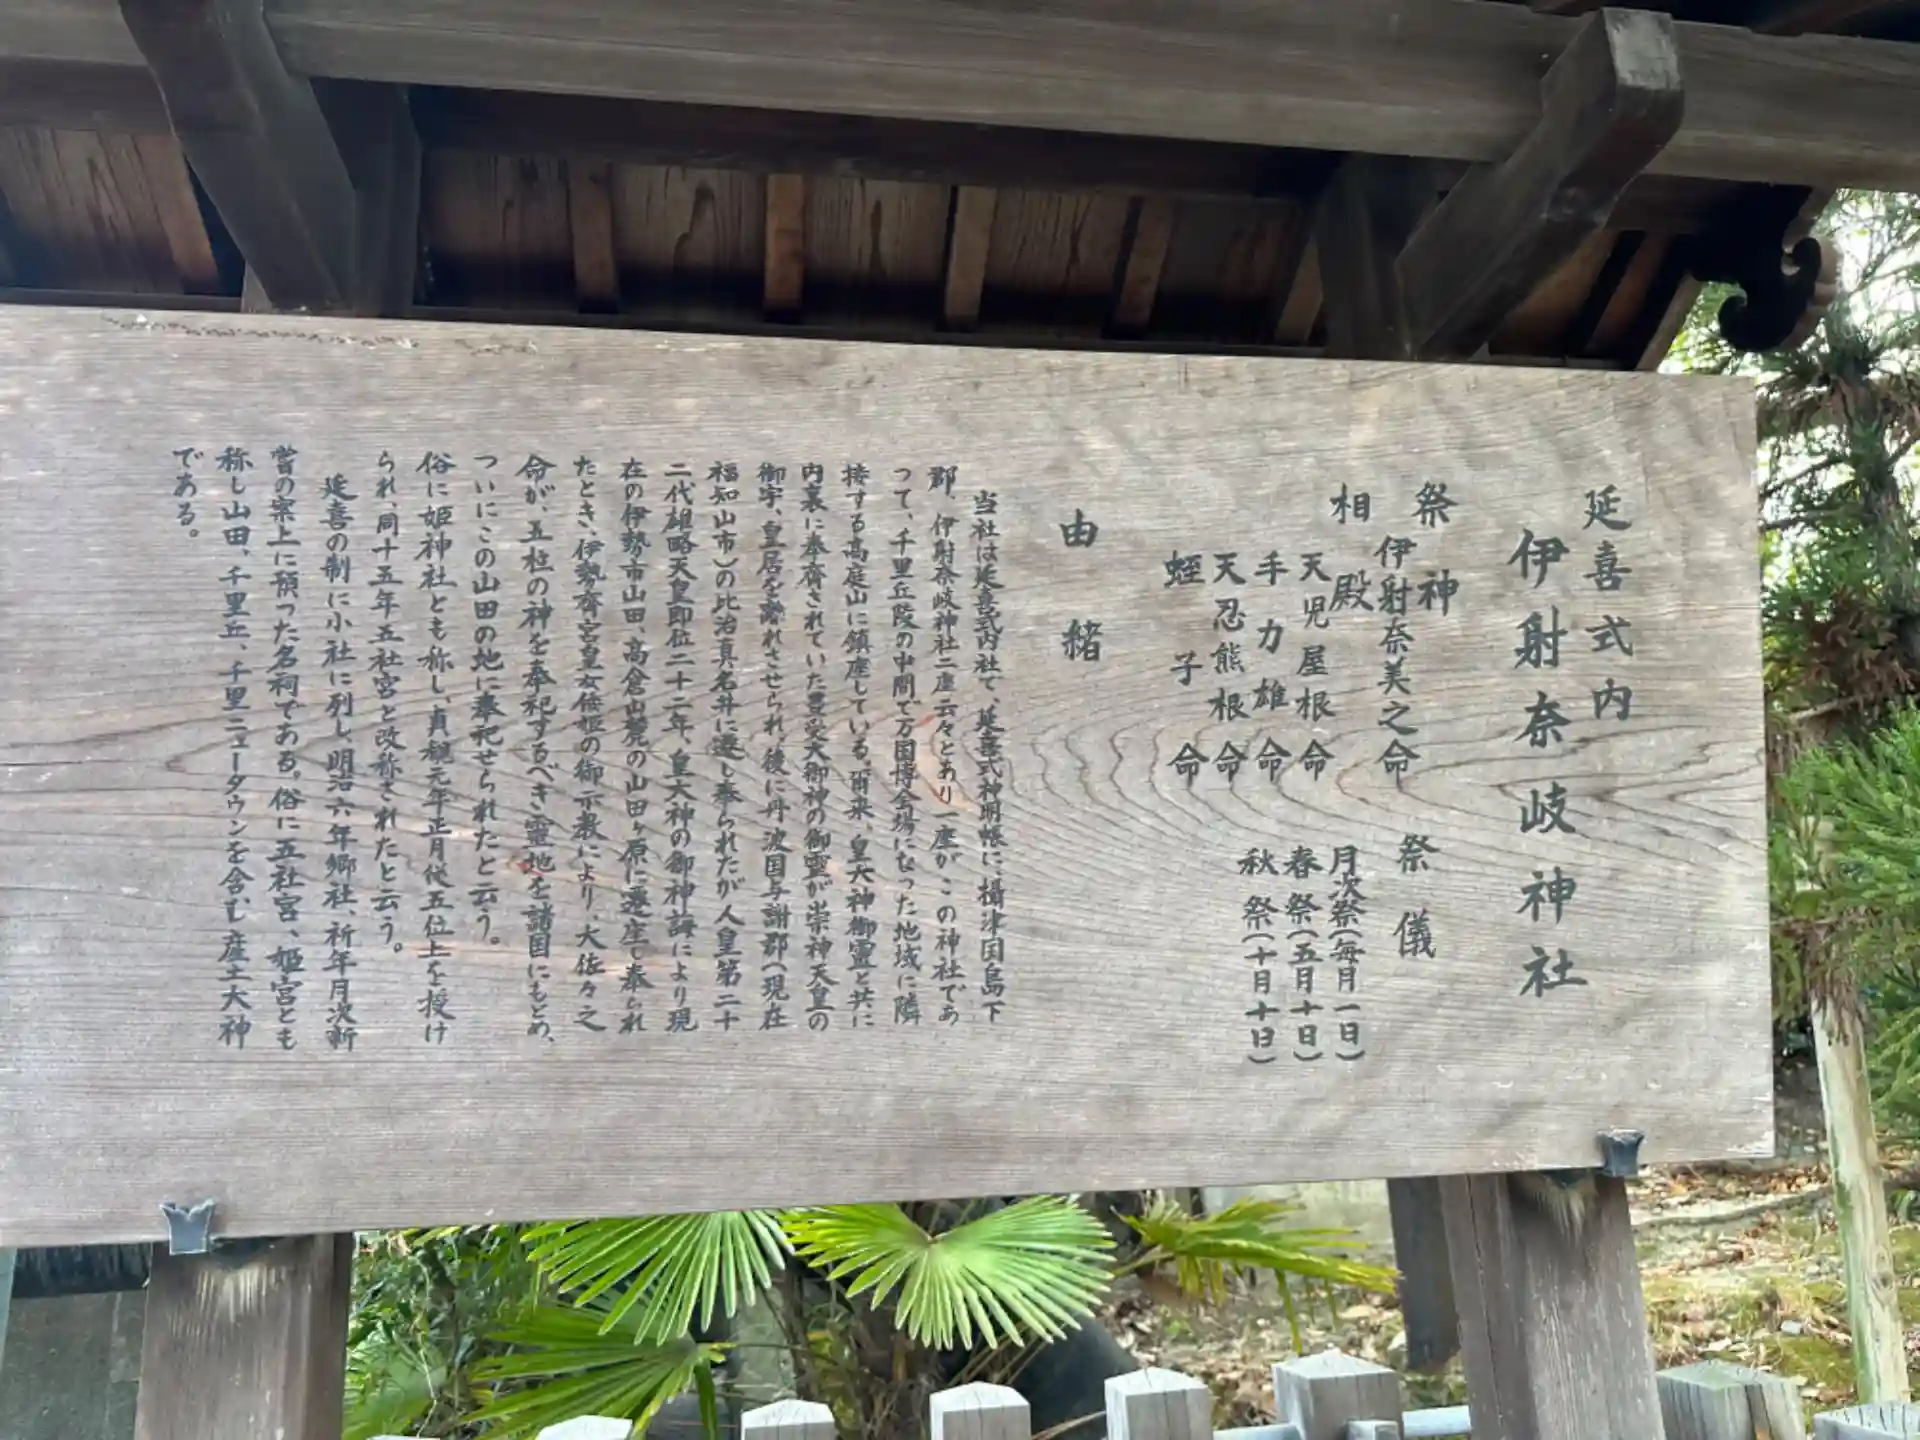 延喜式内
伊射奈岐神社
祭神
伊射奈美之命
相殿
天児屋根命
手力雄命
天忍熊根命
蛭子命
祭儀
月次祭(毎月一日)
春祭(五月十日)
秋祭(十月十日)
由緒
当社は延喜式内社で、延喜式神明帳に、摂津国島下
郡、伊射奈岐神社二座云々とあり一座が、この神社であ
って、千里丘陵の中間で万国博会場になった地域に隣
接する高庭山に鎮座している。爾来、皇大神御霊と共に
内裏に奉斎されていた豊受大御神の御霊が崇神天皇の
御宇、皇居を離れさせられ、後に丹波国与謝郡(現在
福知山市)の比治真名井に遷し奉られたが人皇第二十
二代雄略天皇即位二十二年、皇大神の御神誨により現
在の伊勢市山田、高倉山麓の山田ヶ原に遷座し奉られ
たとき、伊勢斎宮皇女倭姫の御示教により、大佐々之
命が、五柱の神を奉祀するべき霊地を諸国にもとめ、
ついにこの山田の地に奉祀せられたと云う。
俗に姫神社とも称し、貞観元年正月従五位上を授け
られ、同十五年五社宮と改称されたと云う。
延喜の制に小社に列し、明治六年郷社、祈年月次新
嘗の案上に預った名祠である。俗に五社宮、姫宮とも
称し山田、千里丘、千里ニュータウンを含む産土大神
である。